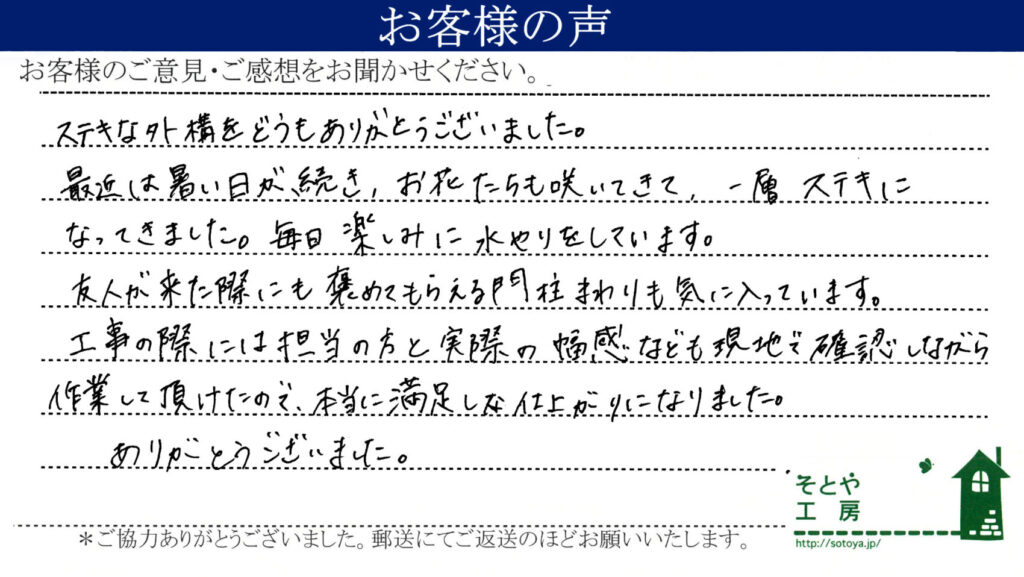 お客様の声
お客様のご意見・ご感想をお聞かせください。
ステキな外構をどうもありがとうございました。
最近は暑い日が続き、お花たちも咲いてきて、一層ステキに
なってきました。毎日楽しみに水やりをしています。
友人が来た際にも褒めてもらえる門柱まわりも気に入っています。
工事の際には担当の方と実際の幅感なども現地で確認しながら
作業して頂けたので、本当に満足しな仕上がりになりました。
ありがとうございました。
そとや
工房
http://sotoya.jp/
＊ご協力ありがとうございました。郵送にてご返送のほどお願いいたします。